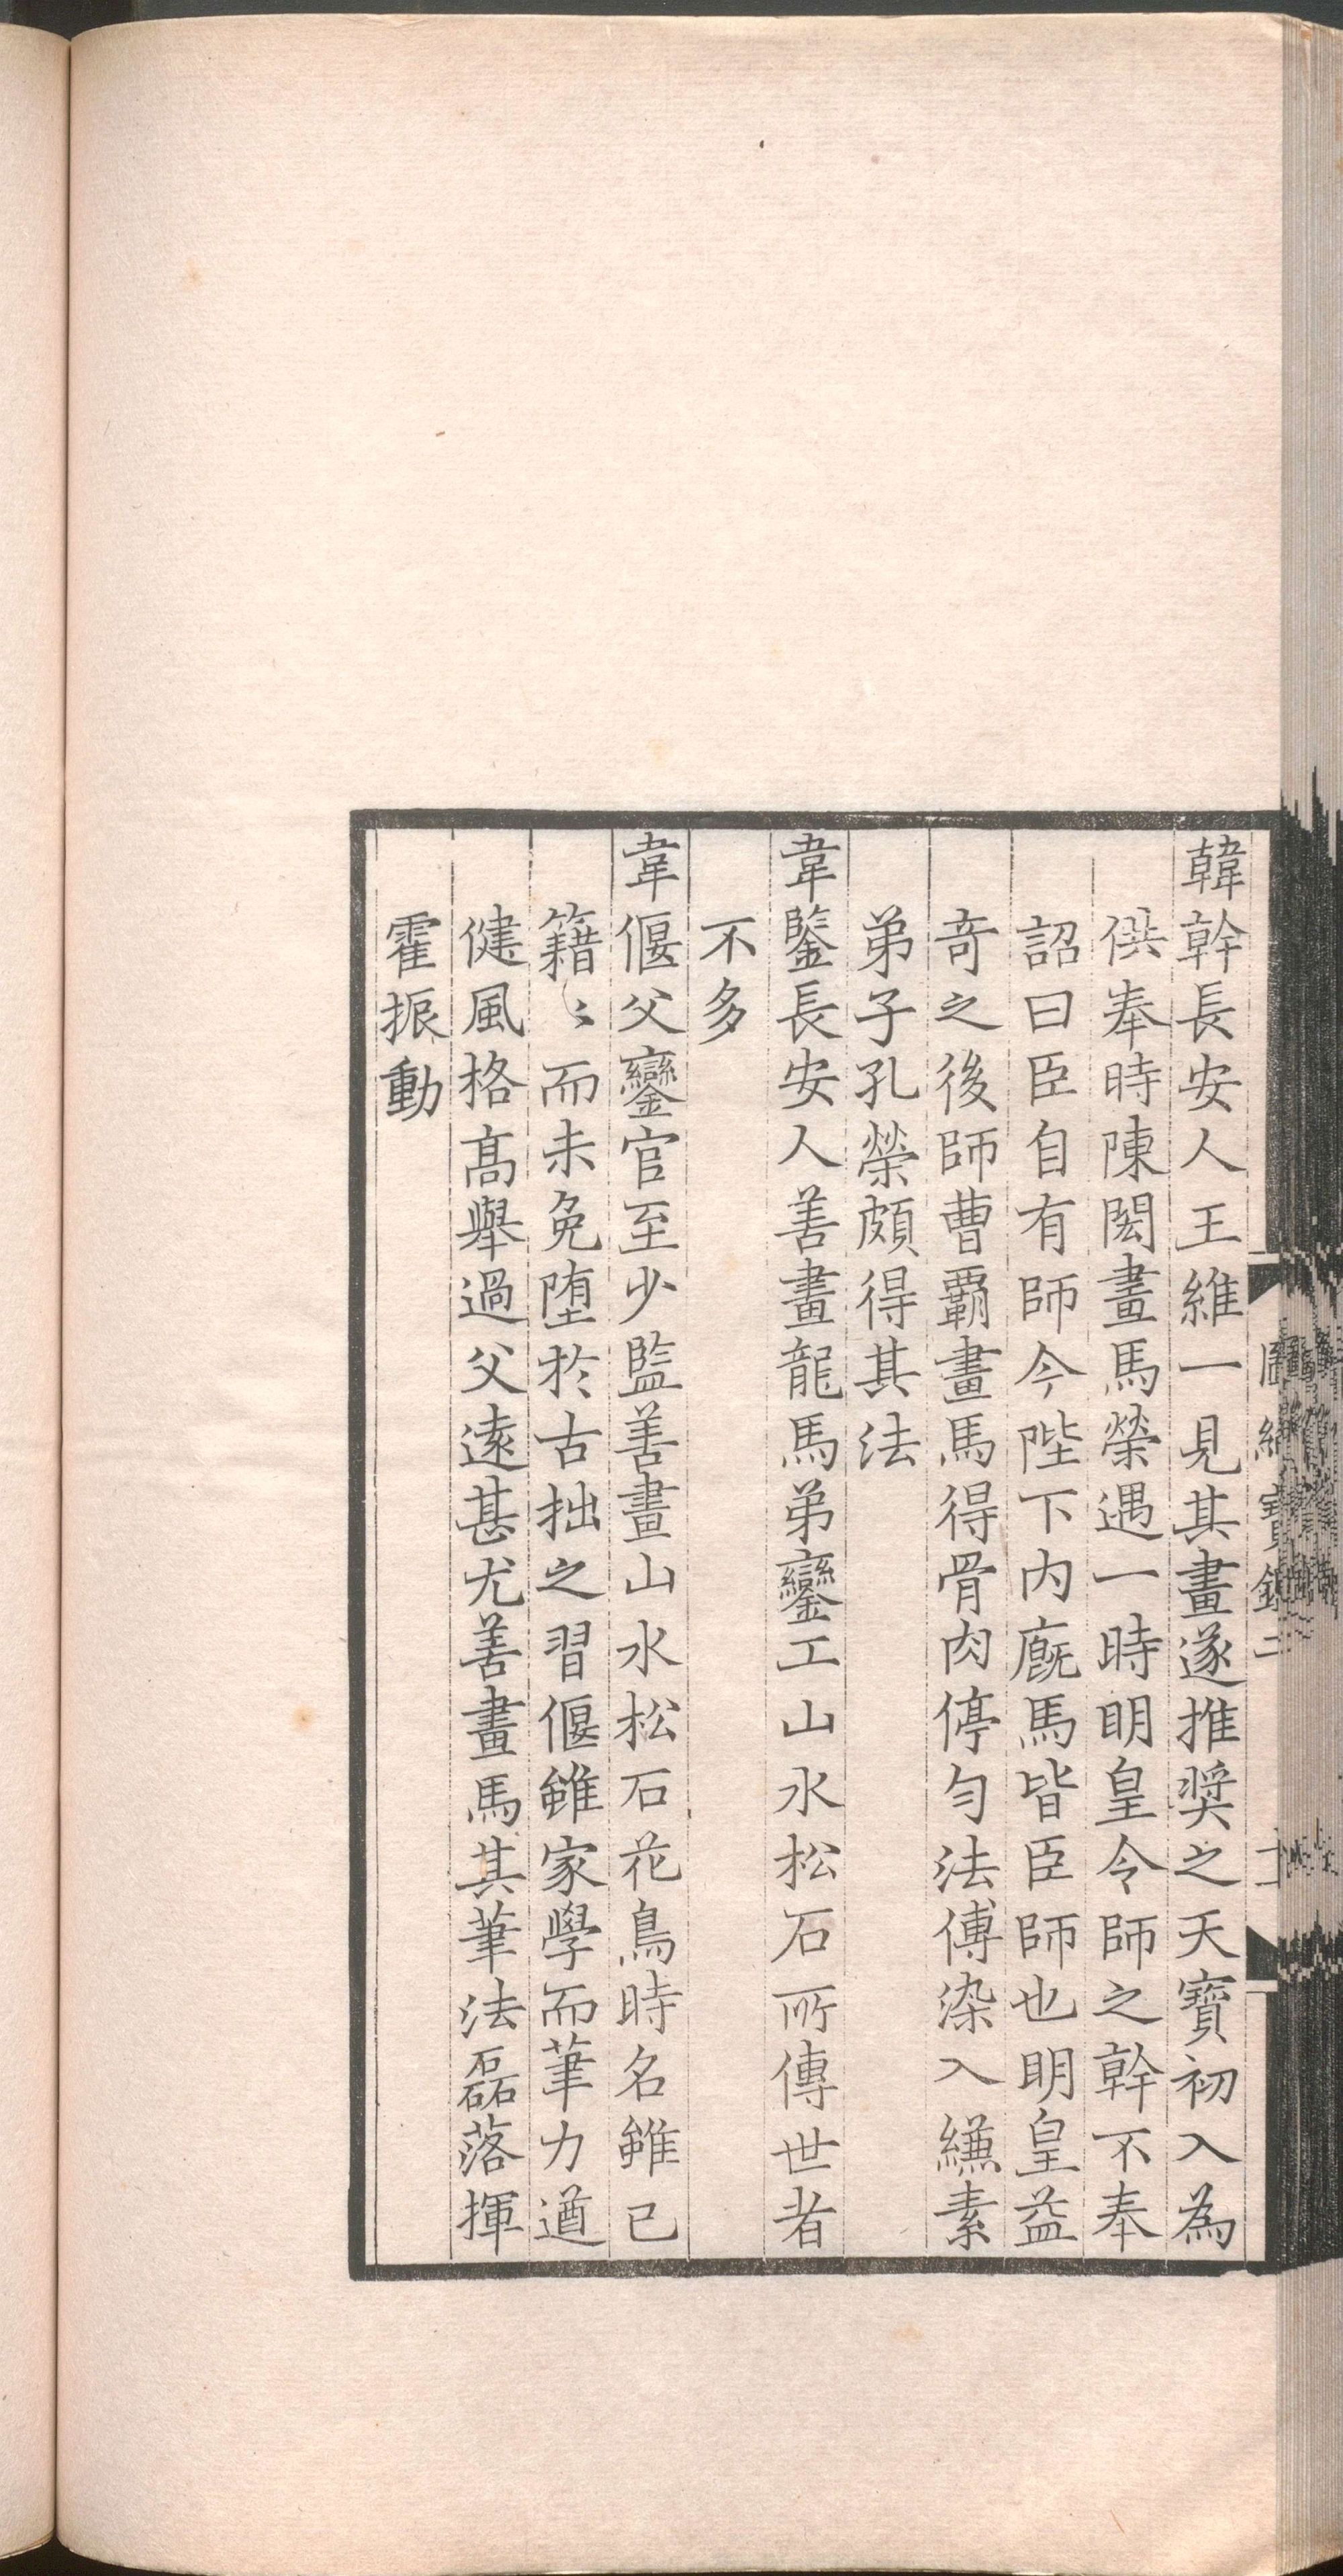 韓幹長安人王維一見其畫遂推奨之天寶初入為
供奉時陳閎畫馬榮遇一時明皇令師之幹不奉
詔曰臣自有師今陛下內廐馬皆臣師也明皇益
竒之後師曹霸畫馬得骨肉停勻法傅染入縑素
弟子孔榮頗得其法
韋鑒長安人善畫龍馬弟鑾工山水松石所傳世者
不多
韋偃父鑾官至少監善畫山水松石花鳥時名雖已
籍〻而未免堕扵古拙之習偃雖家學而筆力遒
健風格髙舉過父逺甚尤善畫馬其筆法磊落揮
霍振動
寶
二